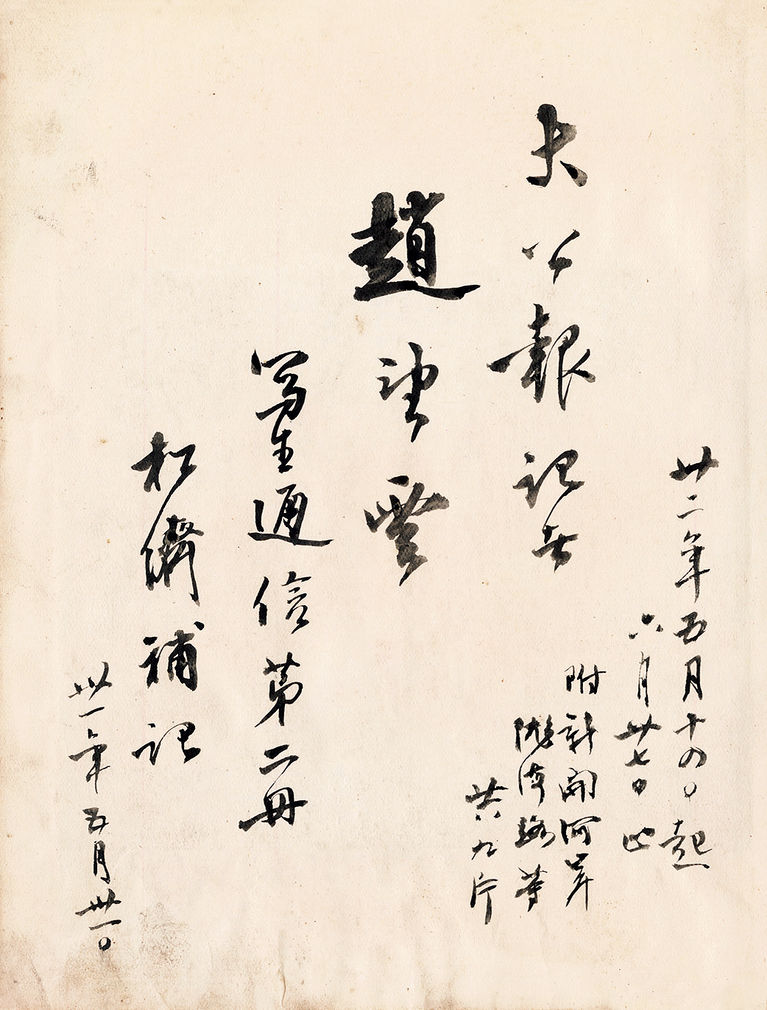 大公報記者
廿二年五月十四日起
六月廿七日止
附新開河岸
隴海路等
共九片
趙望雲
寫生通信第二冊
松儕補記
卅一年五月卅一日